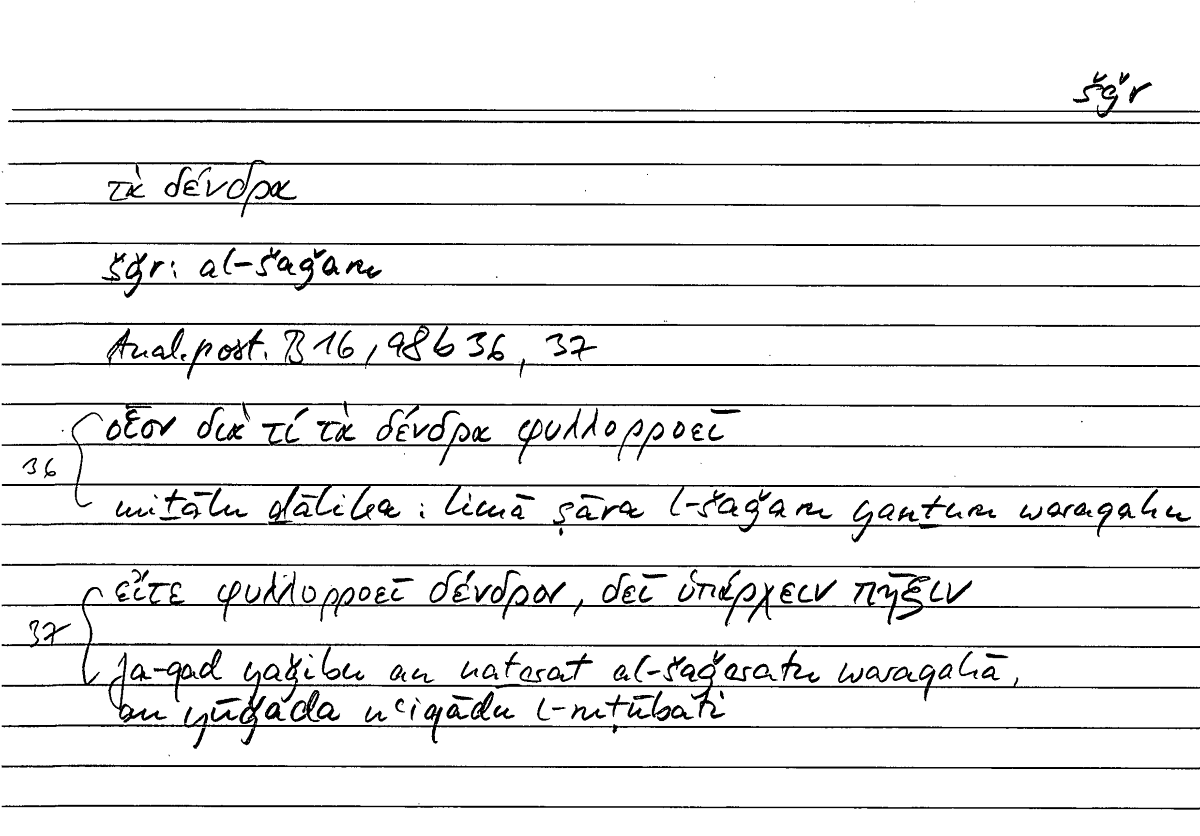 šǧr
τὰ δένδρα
šǧr: al-šaǧaru
Anal. post. B 16, 98b 36, 37
οἷον διὰ τί τὰ δένδρα φυλλορροεῖ
36
miṯālu ḏālika : limā ṣāra l-šaǧaru yanṯuru waraqahu
εἴτε φυλλορροεῖ δένδρον, δεῖ ὑπάρχειν πῆξιν
37
fa-qad yaǧibu an naṯarat al-šaǧaratu waraqahā,
an yūǧada nʿiqādu l-ruṭūbati